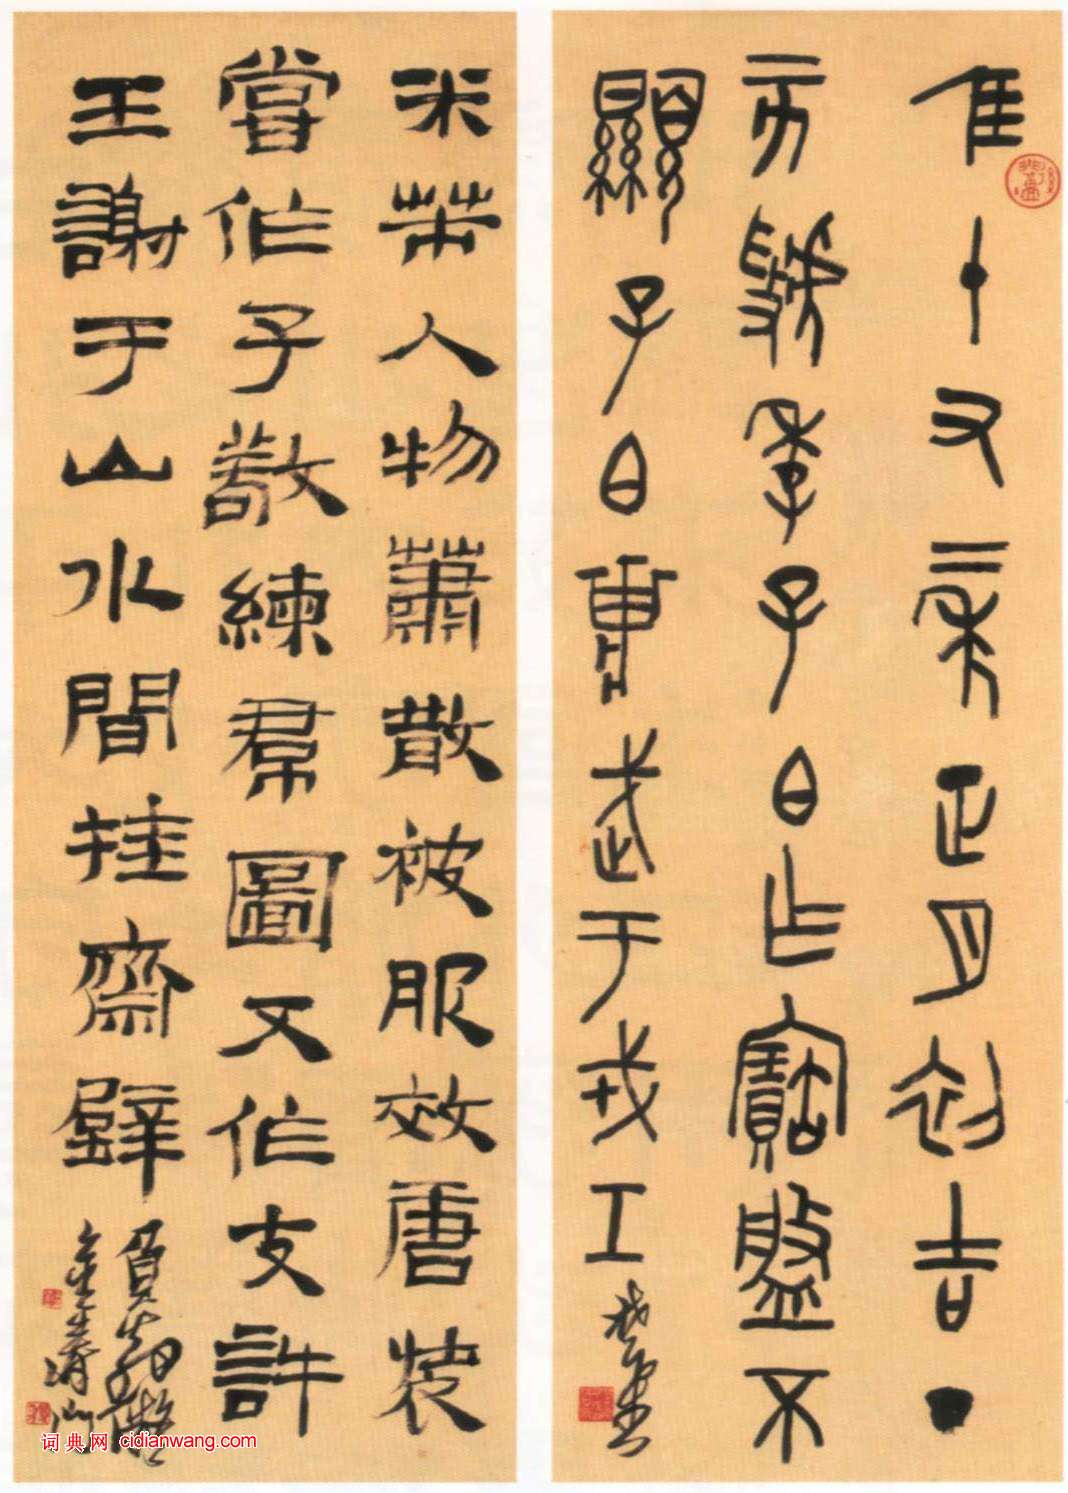 隹十又二年正月初吉丁
亥虢季子白乍寶盤不
顯子白壯武于戎工
米芾人物蕭散被服效唐裝
嘗作子敬練帬圖又作支許
王謝于山水間挂齋壁
金壽門
词典网 cidianwang.com